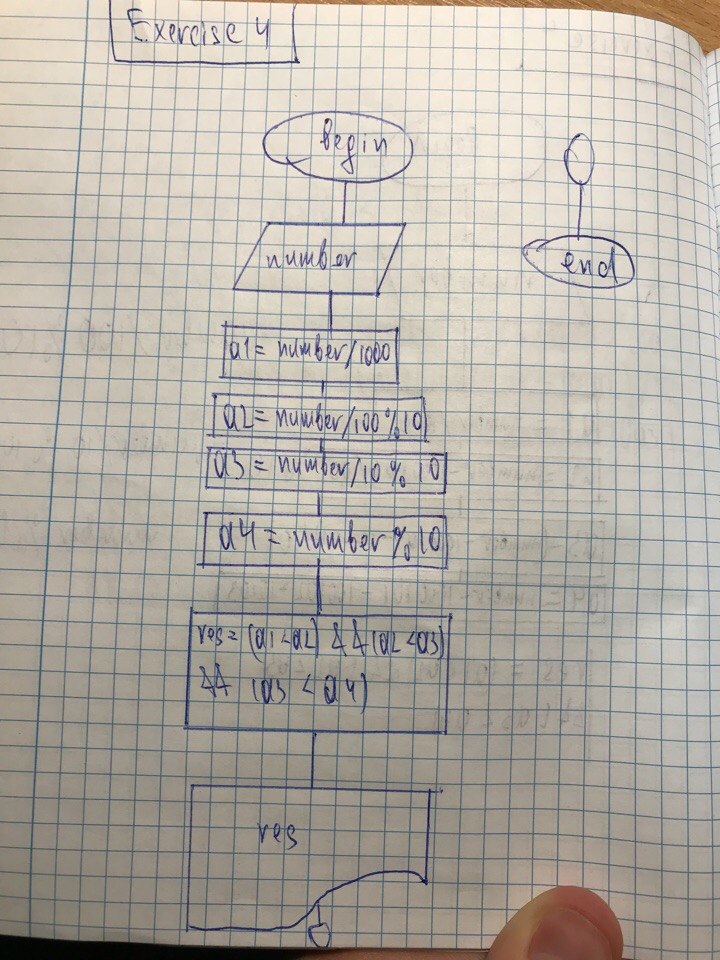 Exercise 4
begin
number
end
a1 = number/1000
a2 = number/100%10
a3 = number/10%10
a4 = number%10
res = (a1<a2) && (a2<a3)
&& (a3 < a4)
res